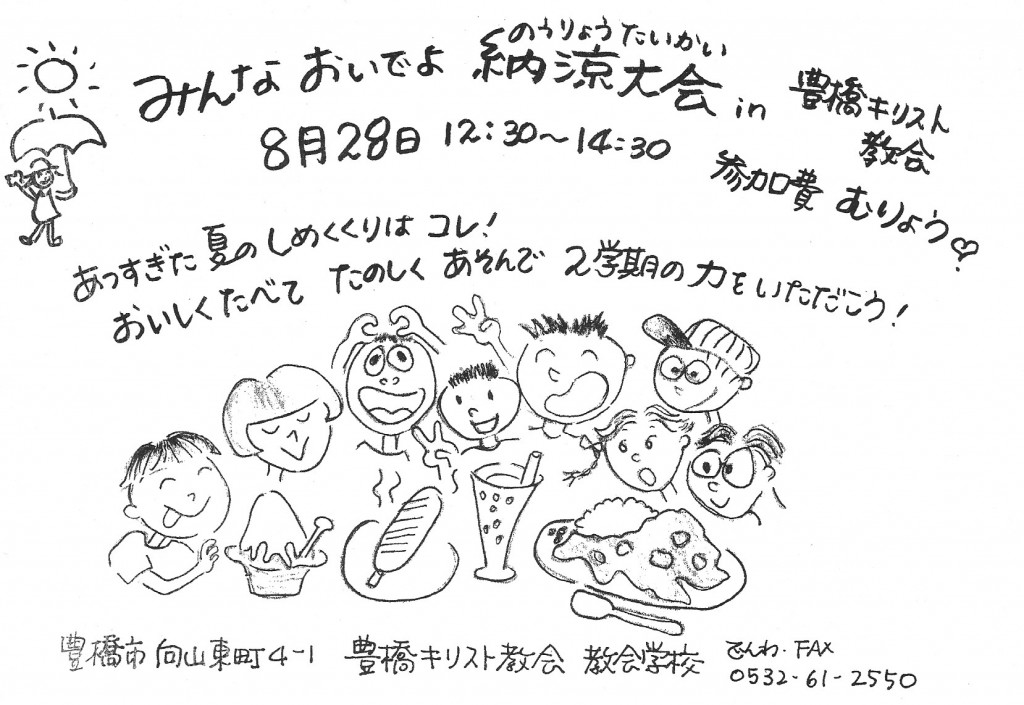 のうりょうたいかい
みんな おいでよ 納涼大会 in 豊橋キリスト
教会
8月28日 12:30~14:30
参加費 むりょう♡
あっすぎた 夏の しめくくりは コレ!
おいしくたべて たのしく あそんで 2学期の 力を いただこう!
豊橋市 向山東町4-1 豊橋キリスト教会 教会学校
でんわ・FAX
0532-61-2550